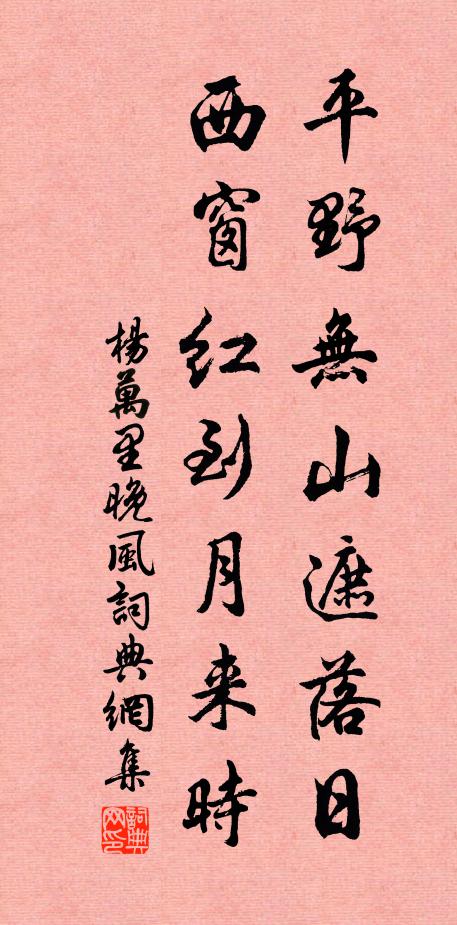 平野無山遮落日
西窗紅到月来時
楊萬里晚風詞典網集
詞典網印